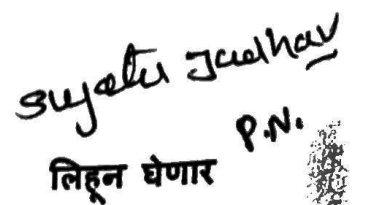 Sujata Jadhav
P.N.
लिहून घेणार